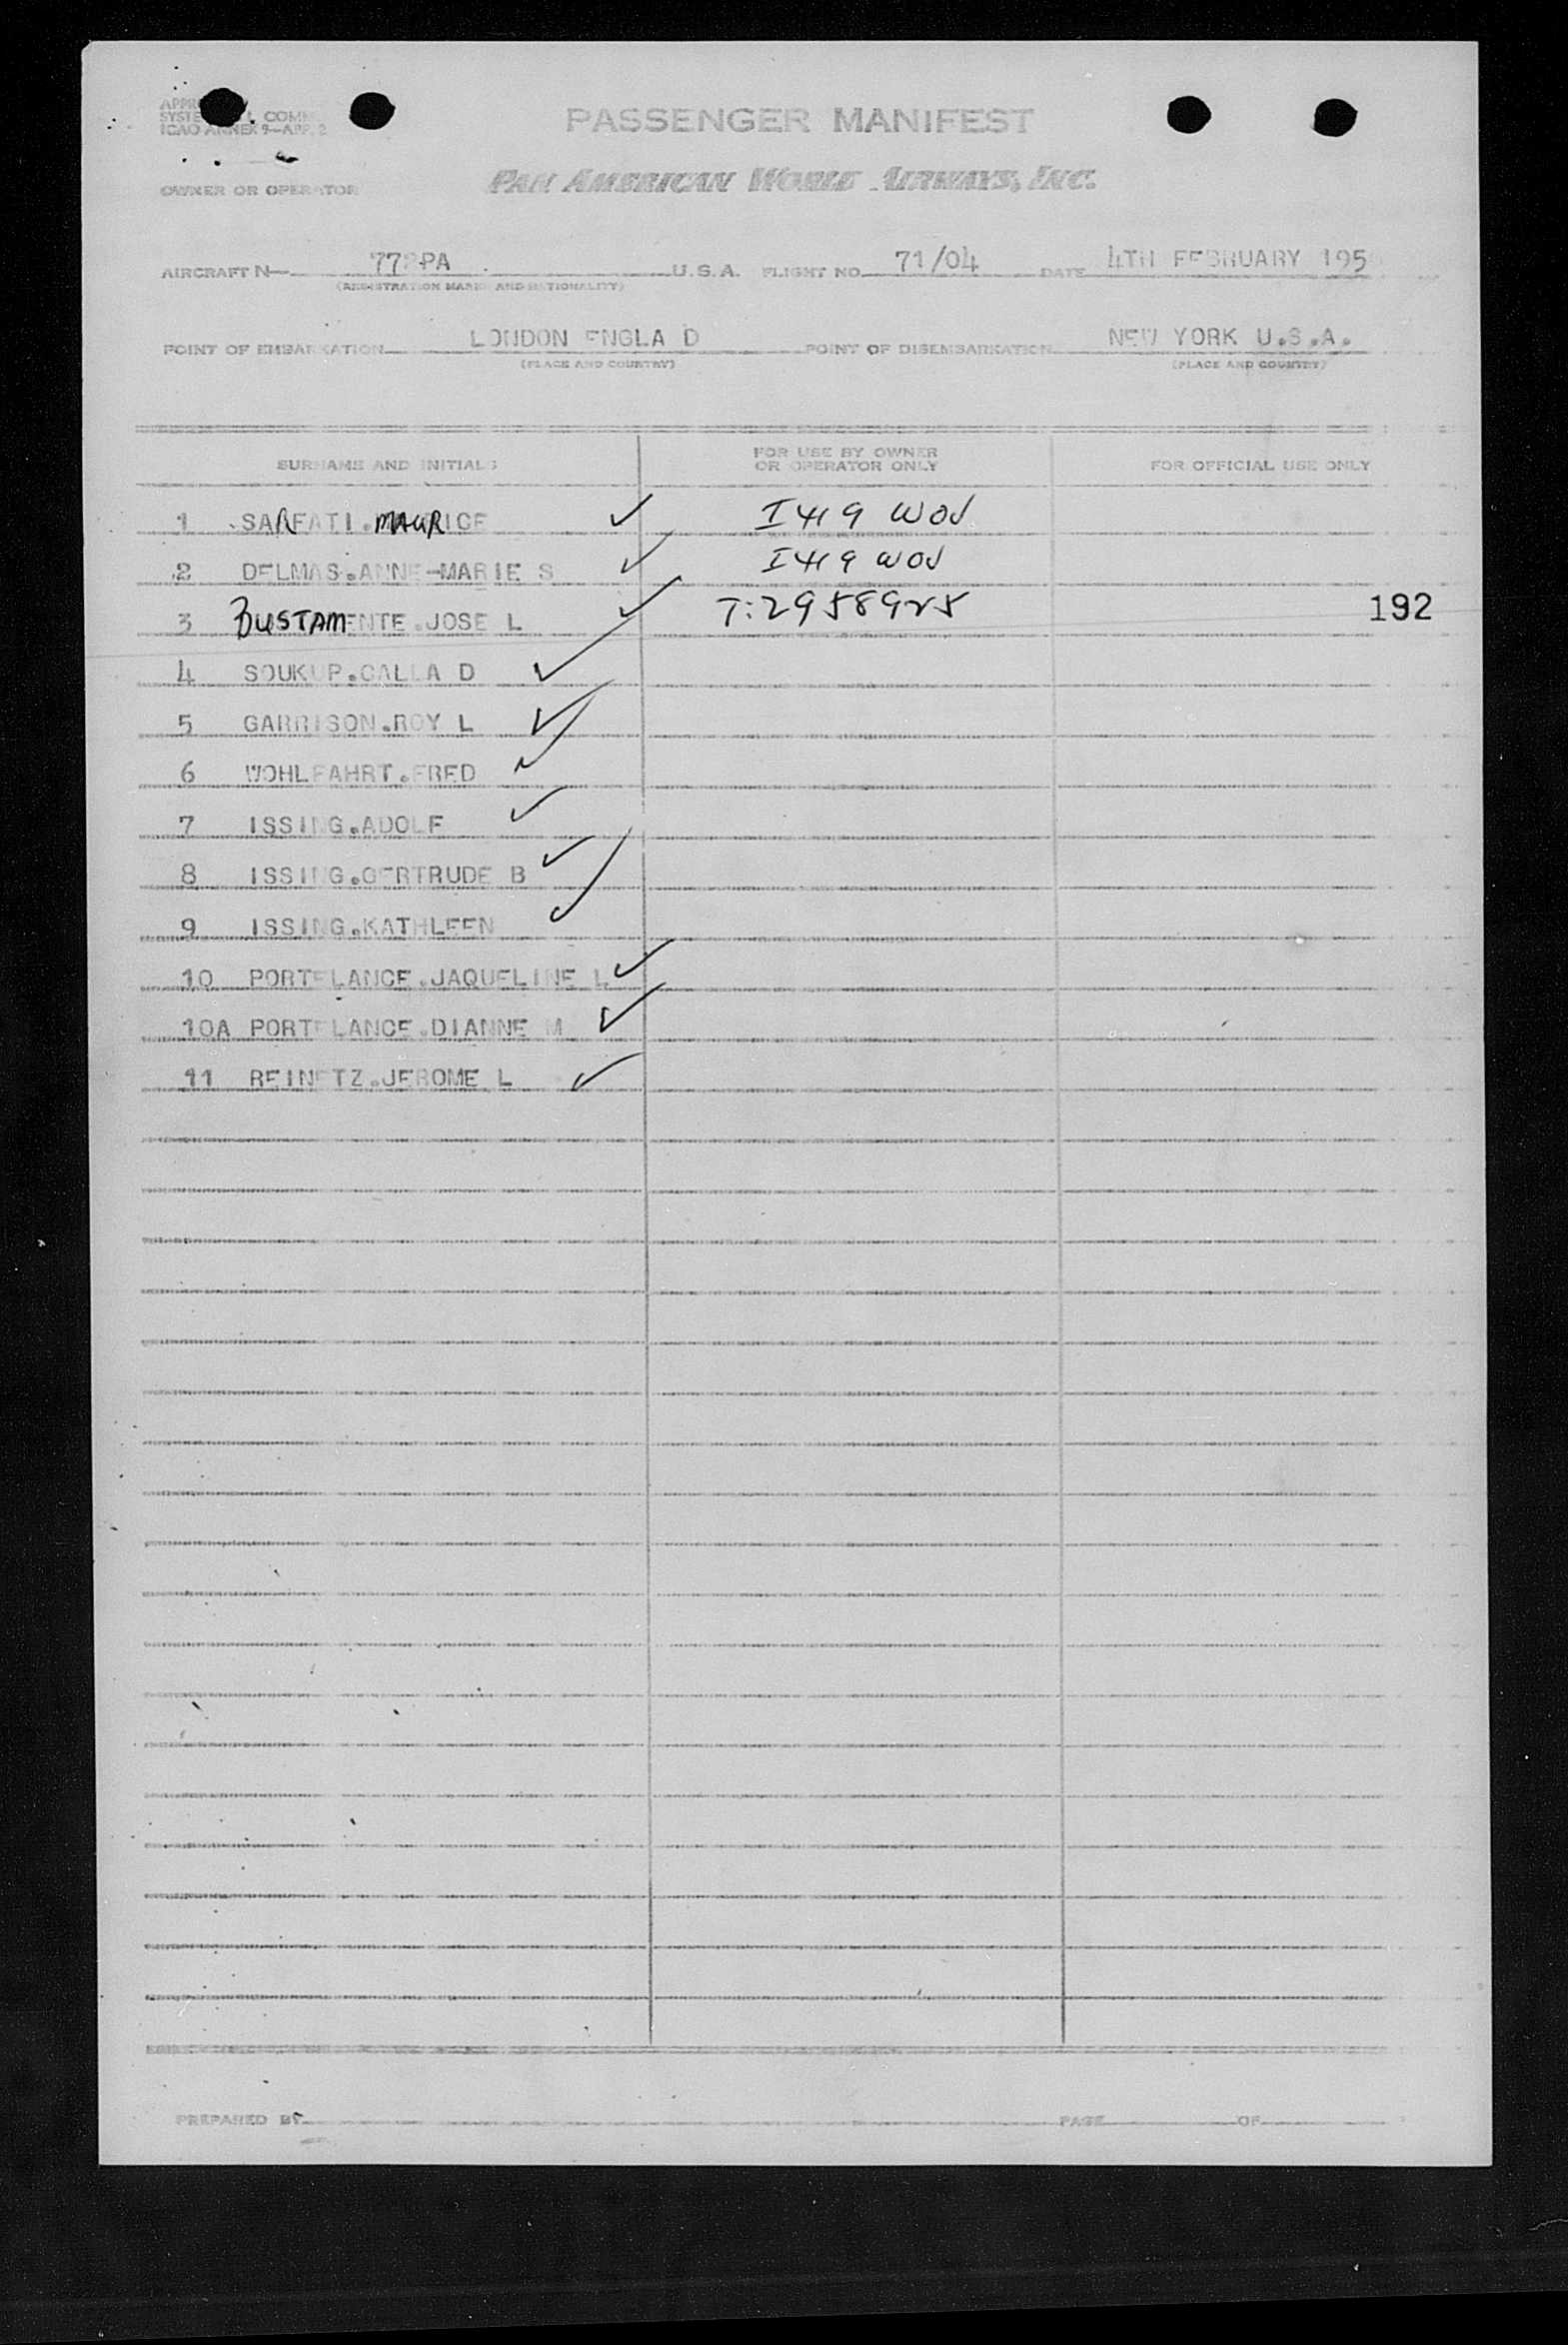 PASSENGER MANIFEST
ICAO ANNEX 9—APP. 2
OWNER OR OPERATOR
PAN AMERICAN WORLD AIRWAYS, INC.
AIRCRAFT N— PA U.S.A. FLIGHT NO. 71/04 DATE 4TH FEBRUARY 195
(REGISTRATION MARKS AND NATIONALITY)
POINT OF EMBARKATION LONDON ENGLA D POINT OF DISEMBARKATION NEW YORK U.S.A.
(PLACE AND COUNTRY) (PLACE AND COUNTRY)
SURNAME AND INITIALS FOR USE BY OWNER OR OPERATOR ONLY FOR OFFICIAL USE ONLY
1 SARFATI.MAURICE ✓ I 419 WOV
2 DELMAS.ANNE-MARIE S ✓ I 419 WOV
3 BUSTAMENTE.JOSE L ✓ T:2958925 192
4 SOUKUP.CALLA D ✓
5 GARRISON.ROY L ✓
6 WOHLFAHRT.FRED ✓
7 ISSING.ADOLF ✓
8 ISSING.GERTRUDE B ✓
9 ISSING.KATHLEEN ✓
10 PORTELANCE.JAQUELINE L ✓
10A PORTELANCE.DIANNE M ✓
11 REINETZ.JEROME L ✓
PREPARED BY PAGE OF